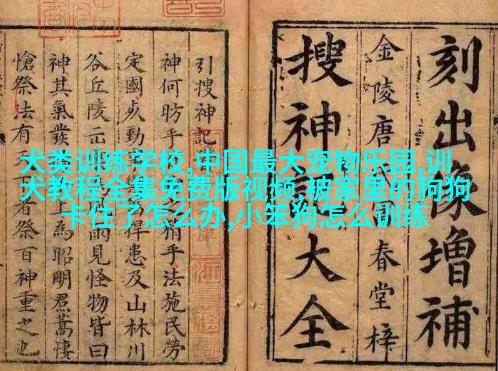 犬类训练学校,中国最大宠物乐园,训
犬教程全集免费版视频,被家里的狗狗
卡住了怎么办,小笨狗怎么训练
刻出像增補
金陵唐 春堂梓
搜神記大全
引搜神記
神何昉乎 猶乎法施民勞
定國 勤 捍患及山林川
谷丘陵 風雨見怪物皆曰
神其氣發 爲昭明焄蒿悽
愴祭法有 者祭百神重之也